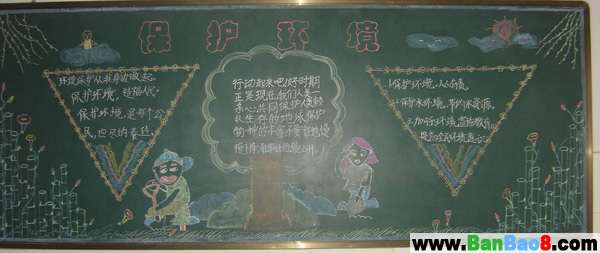 保护环境
环境保护从我身边做起。
保护环境，造福人民。
保护环境，是每个公
民，应尽的责任。
行动起来吧！好时期
正是现在，我们人类一
条心，共同保护人类赖
以生存的地球，保护
物种的丰富
1.保护环境，人人有责。
2.保护水环境，节约水资源。
3.加强环境宣传教育
提高全民环境意识
www.BanBao8.com